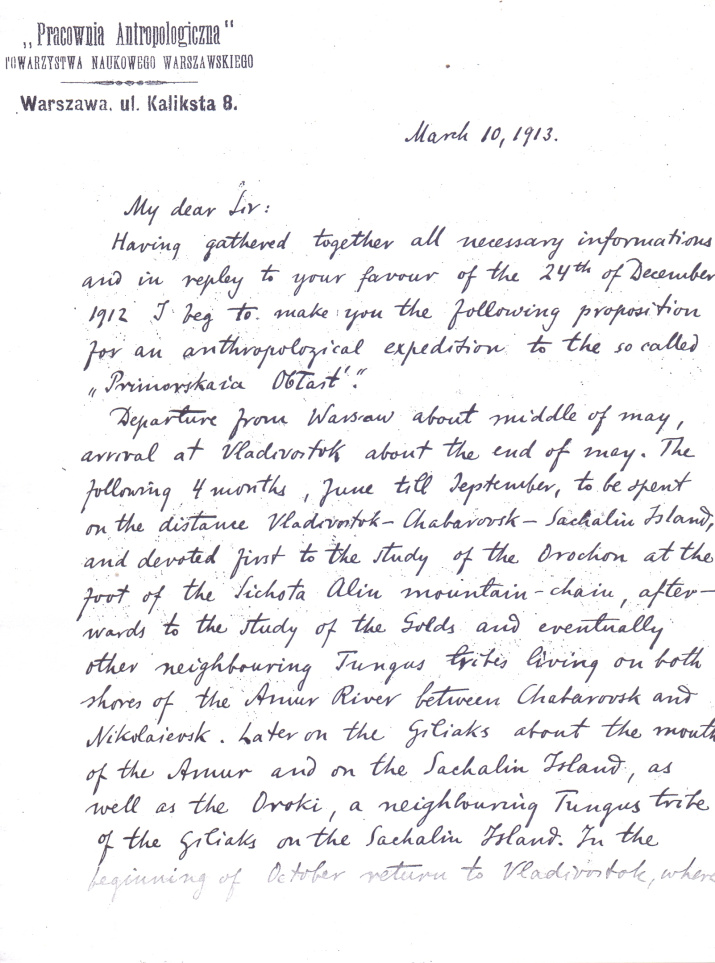 „Pracownia Antropologiczna“
TOWARZYSTWA NAUKOWEGO WARSZAWSKIEGO
Warszawa, ul. Kaliksta 8.
March 10, 1913.
My dear Sir:
Having gathered together all necessary informations
and in repley to your favour of the 24th of December
1912 I beg to make you the following proposition
for an anthropological expedition to the so called
„Primorskaia Obłast'“.
Departure from Warsaw about middle of may,
arrival at Vladivostok about the end of may. The
following 4 months, June till September, to be spent
on the distance Vladivostok – Chabarovsk – Sachalin Island,
and devoted first to the study of the Orochon at the
foot of the Sichota Alin mountain-chain, after-
wards to the study of the Golds and eventually
other neighbouring Tungus tribes living on both
shores of the Amur River between Chabarovsk and
Nikolaievsk. Later on the Giliaks about the mouth
of the Amur and on the Sachalin Island, as
well as the Oroki, a neighbouring Tungus tribe
of the Giliaks on the Sachalin Island. In the
beginning of October return to Vladivostok, where